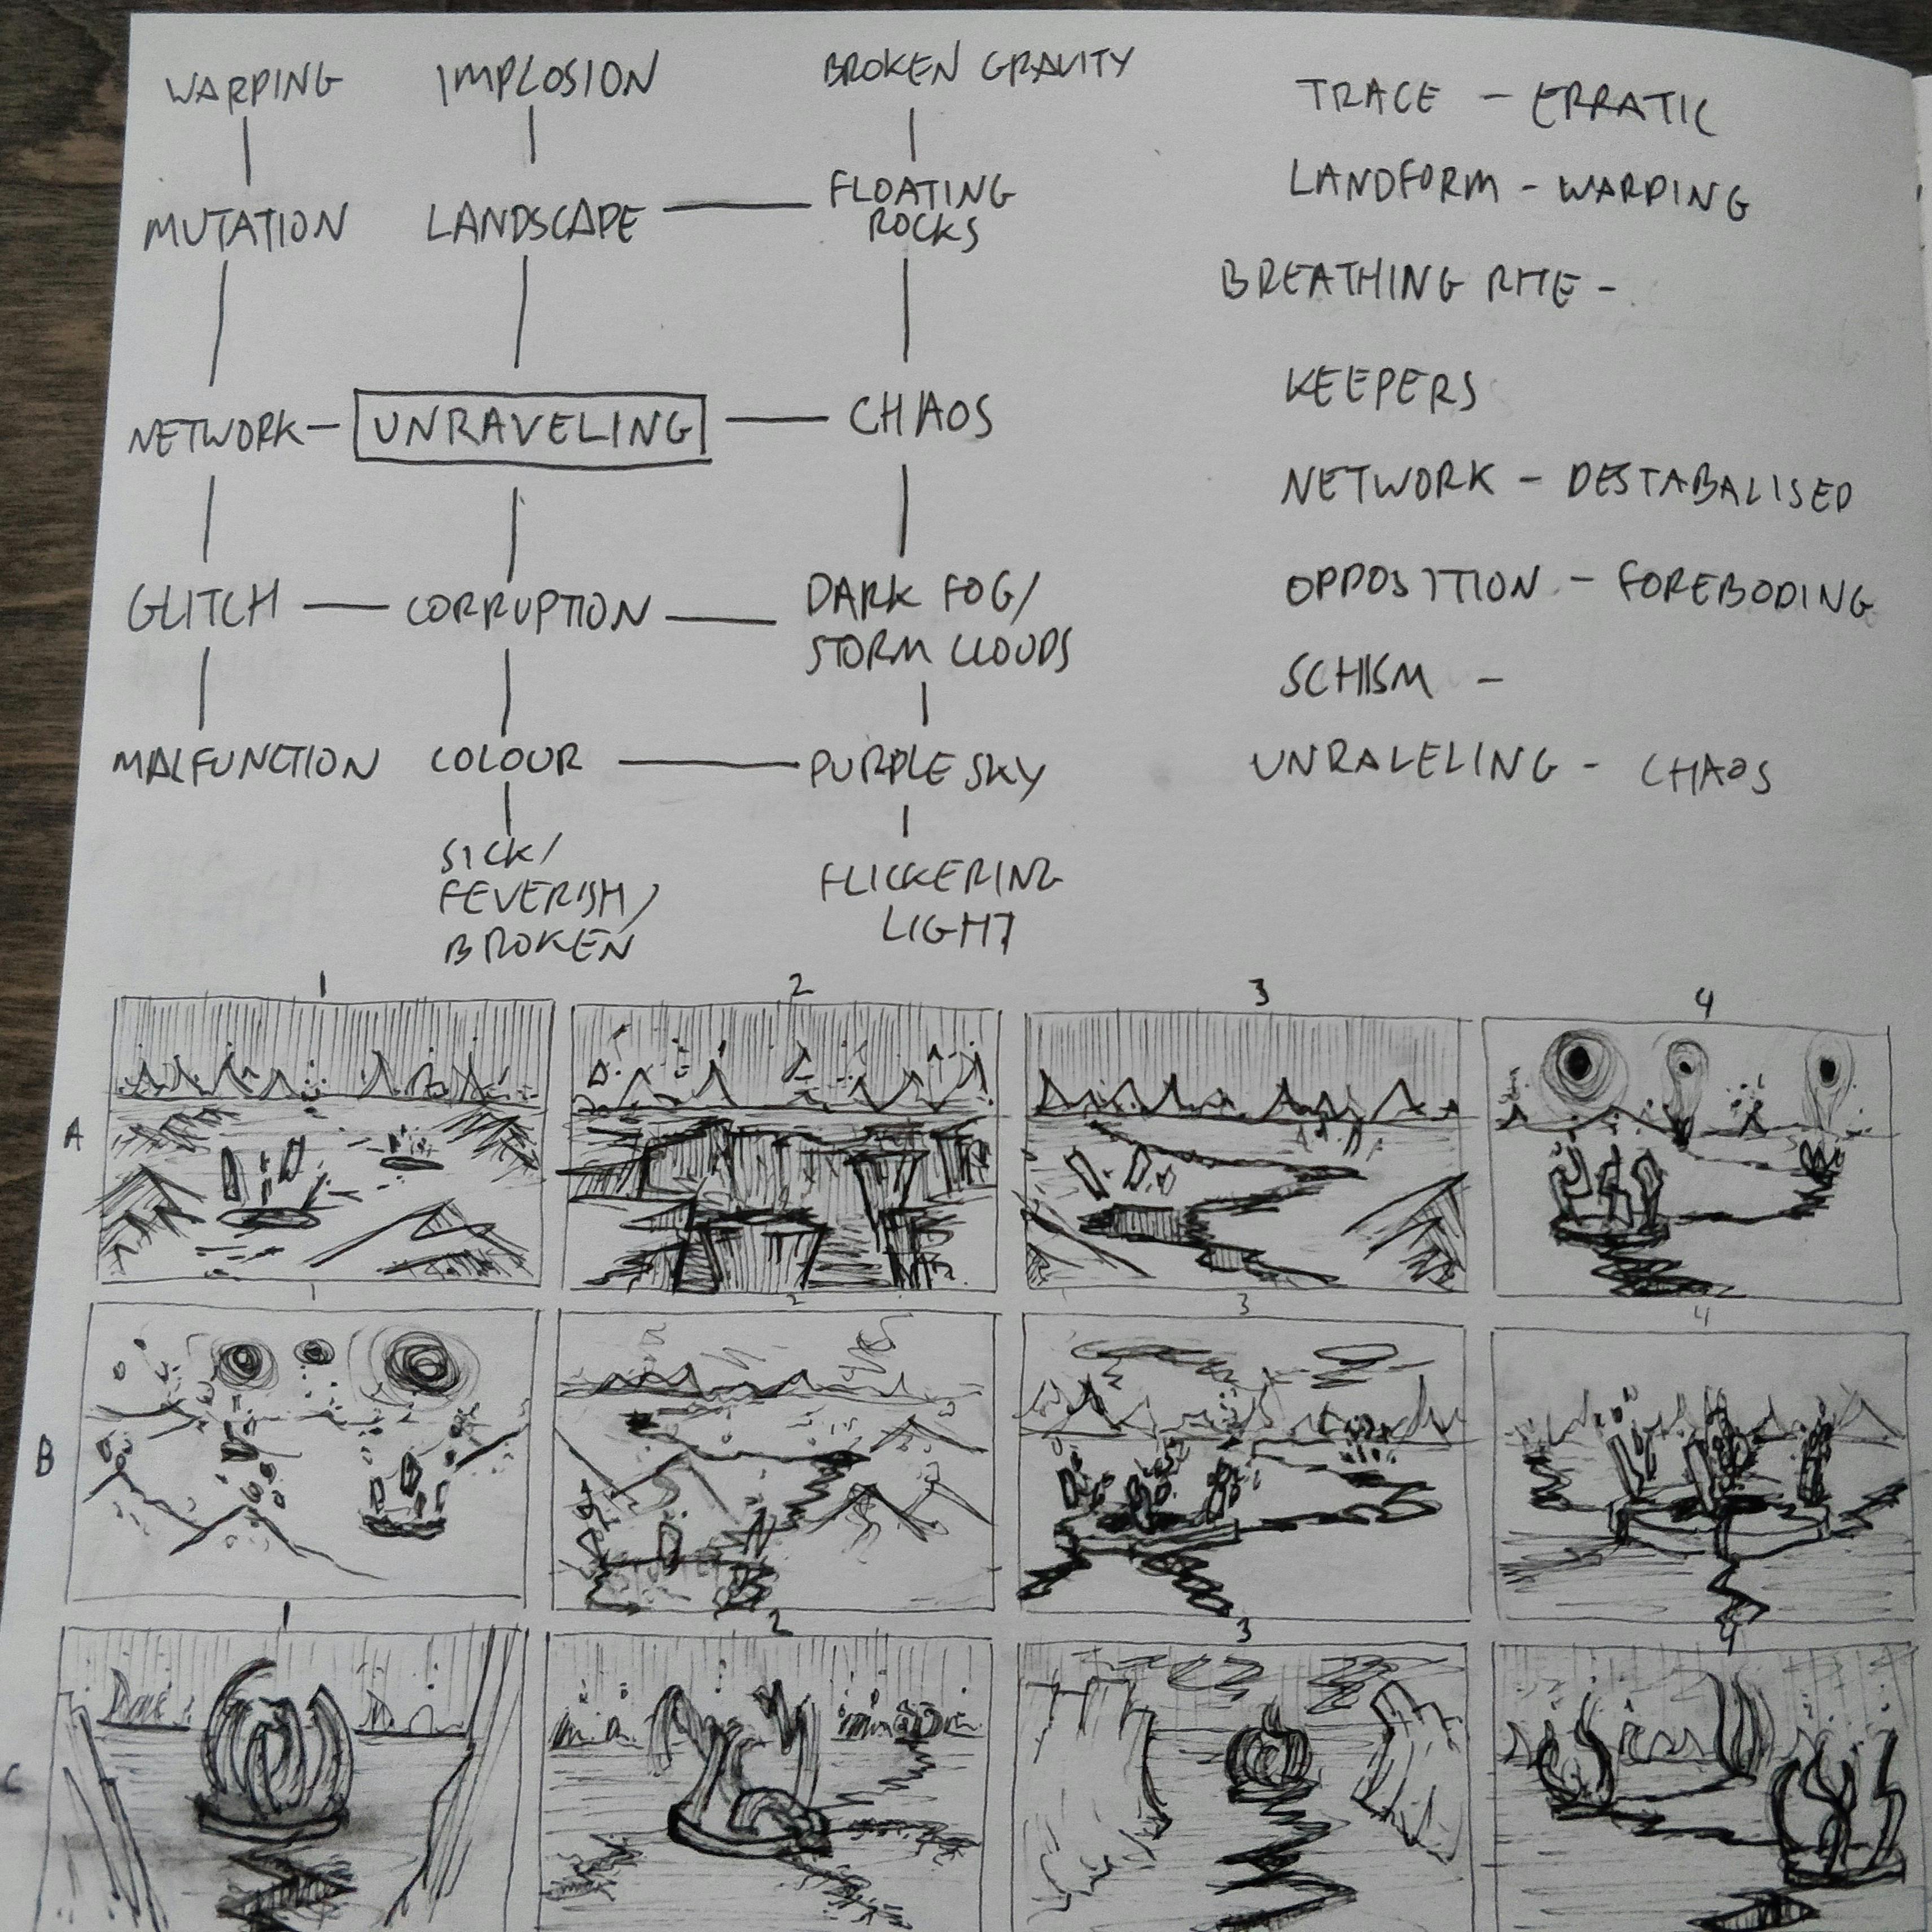 WARPING
IMPLOSION
BROKEN GRAVITY
MUTATION
LANDSCAPE
FLOATING
ROCKS
NETWORK
UNRAVELING
CHAOS
GLITCH
CORRUPTION
DARK FOG/
STORM CLOUDS
MALFUNCTION
COLOUR
PURPLE SKY
SICK/
FEVERISH/
BROKEN
FLICKERING
LIGHT
TRACE - ERRATIC
LANDFORM - WARPING
BREATHING RITE -
KEEPERS
NETWORK - DESTABALISED
OPPOSITION - FOREBODING
SCHISM -
UNRALELING - CHAOS
1 2 3 4
A
1 2 3 4
B
1 2 3 4
C